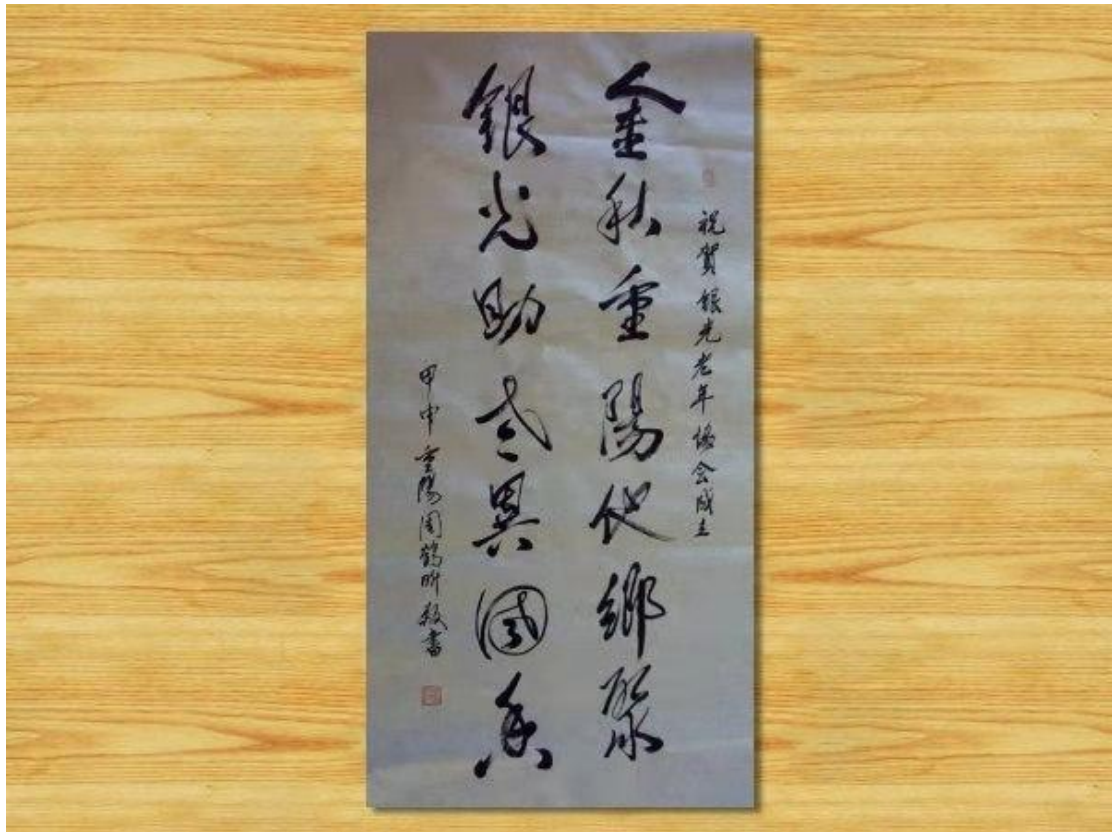 祝賀銀光老年協会成立
金秋重陽他鄉聚
銀光助老異國香
甲申重陽周鶴昕敬書